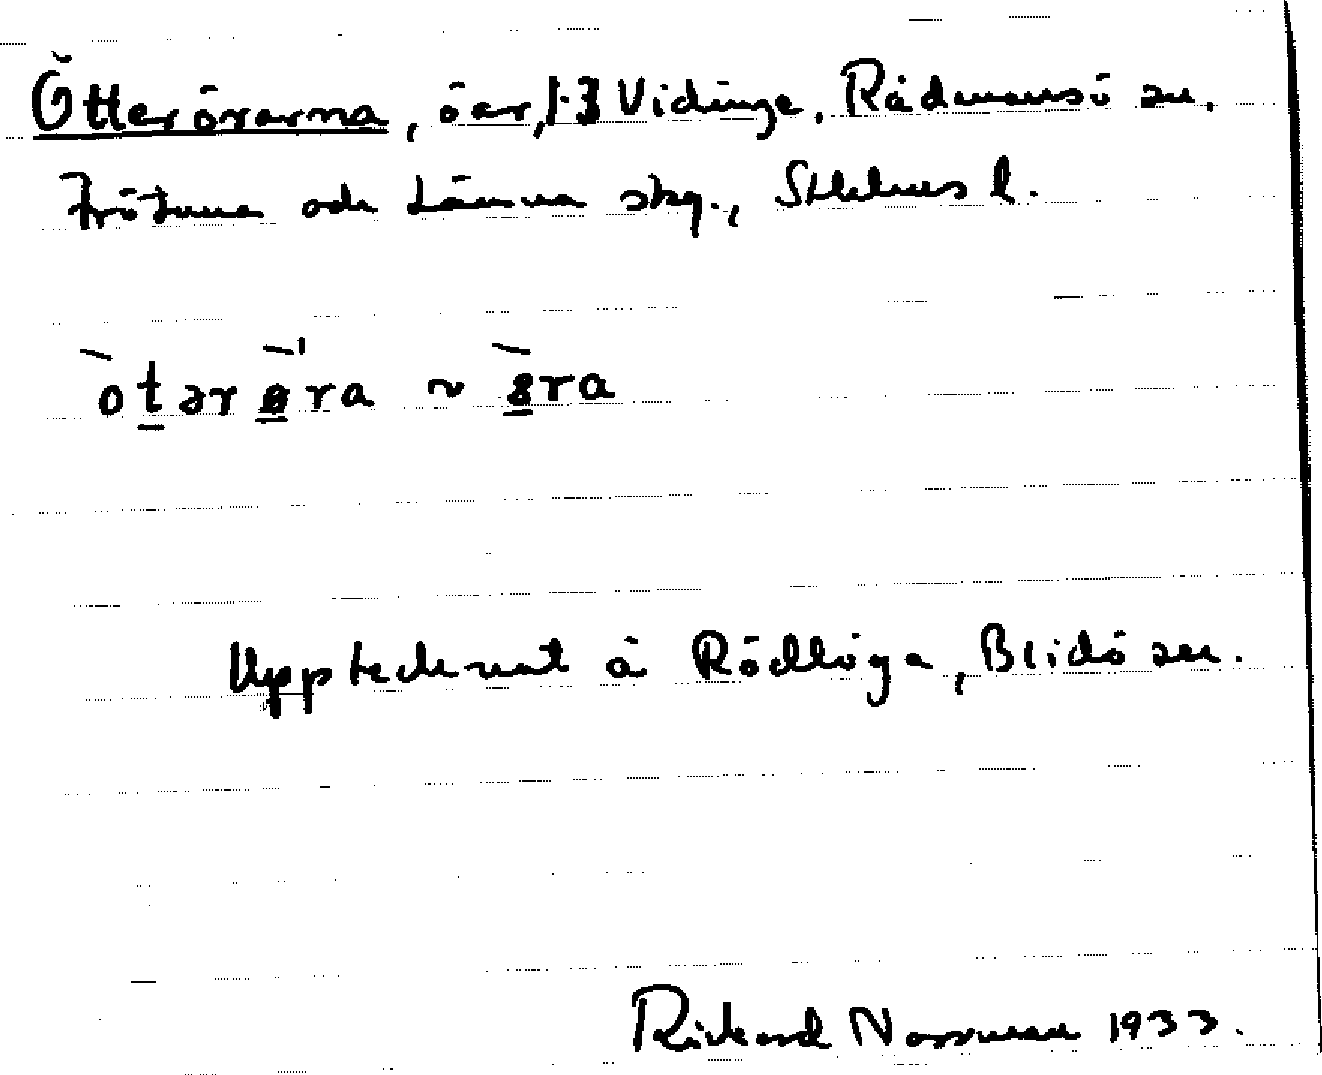 Otterörarna, öar, 1-3 Vidinge, Rådmansö sn.
Frötuna och Länna skg., Sthlms l.
òtərø̀ra ~ ɞ̀ra
Upptecknat å Rödlöga, Blidö sn.
Rickard Norrman 1933.